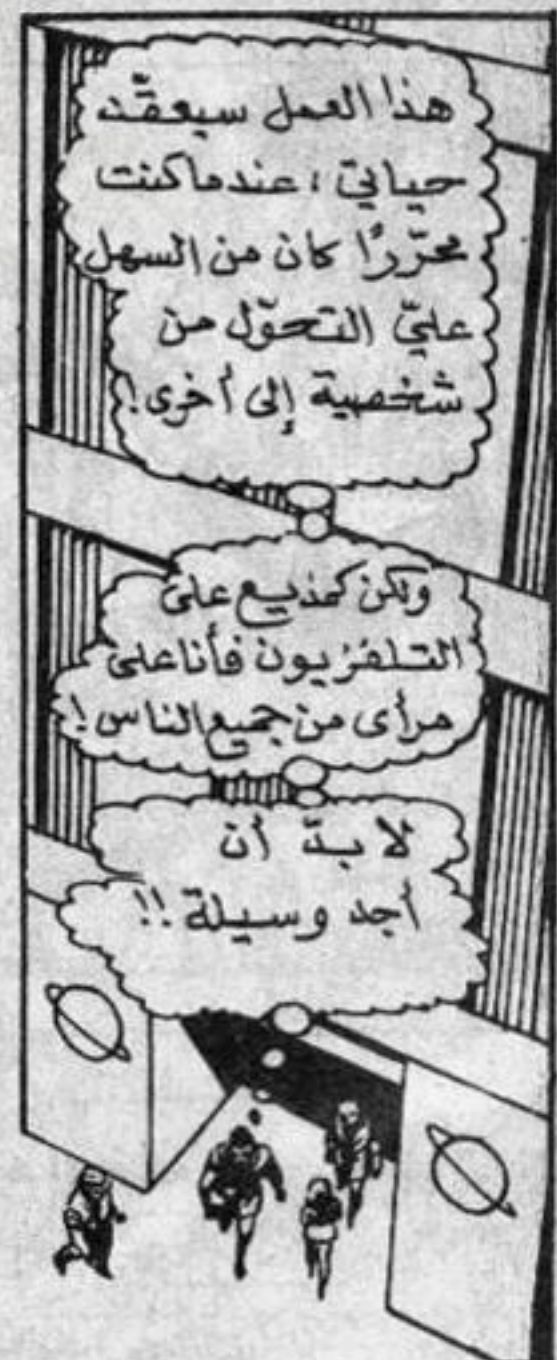 هذا العمل سيعقّد
حياتي ، عندما كنت
محرّرًا كان من السهل
عليّ التحوّل من
شخصية إلى أخرى !
ولكن كمذيع على
التلفزيون فأنا على
مرأى من جميع الناس !
لا بدّ أن
أجد وسيلة !!